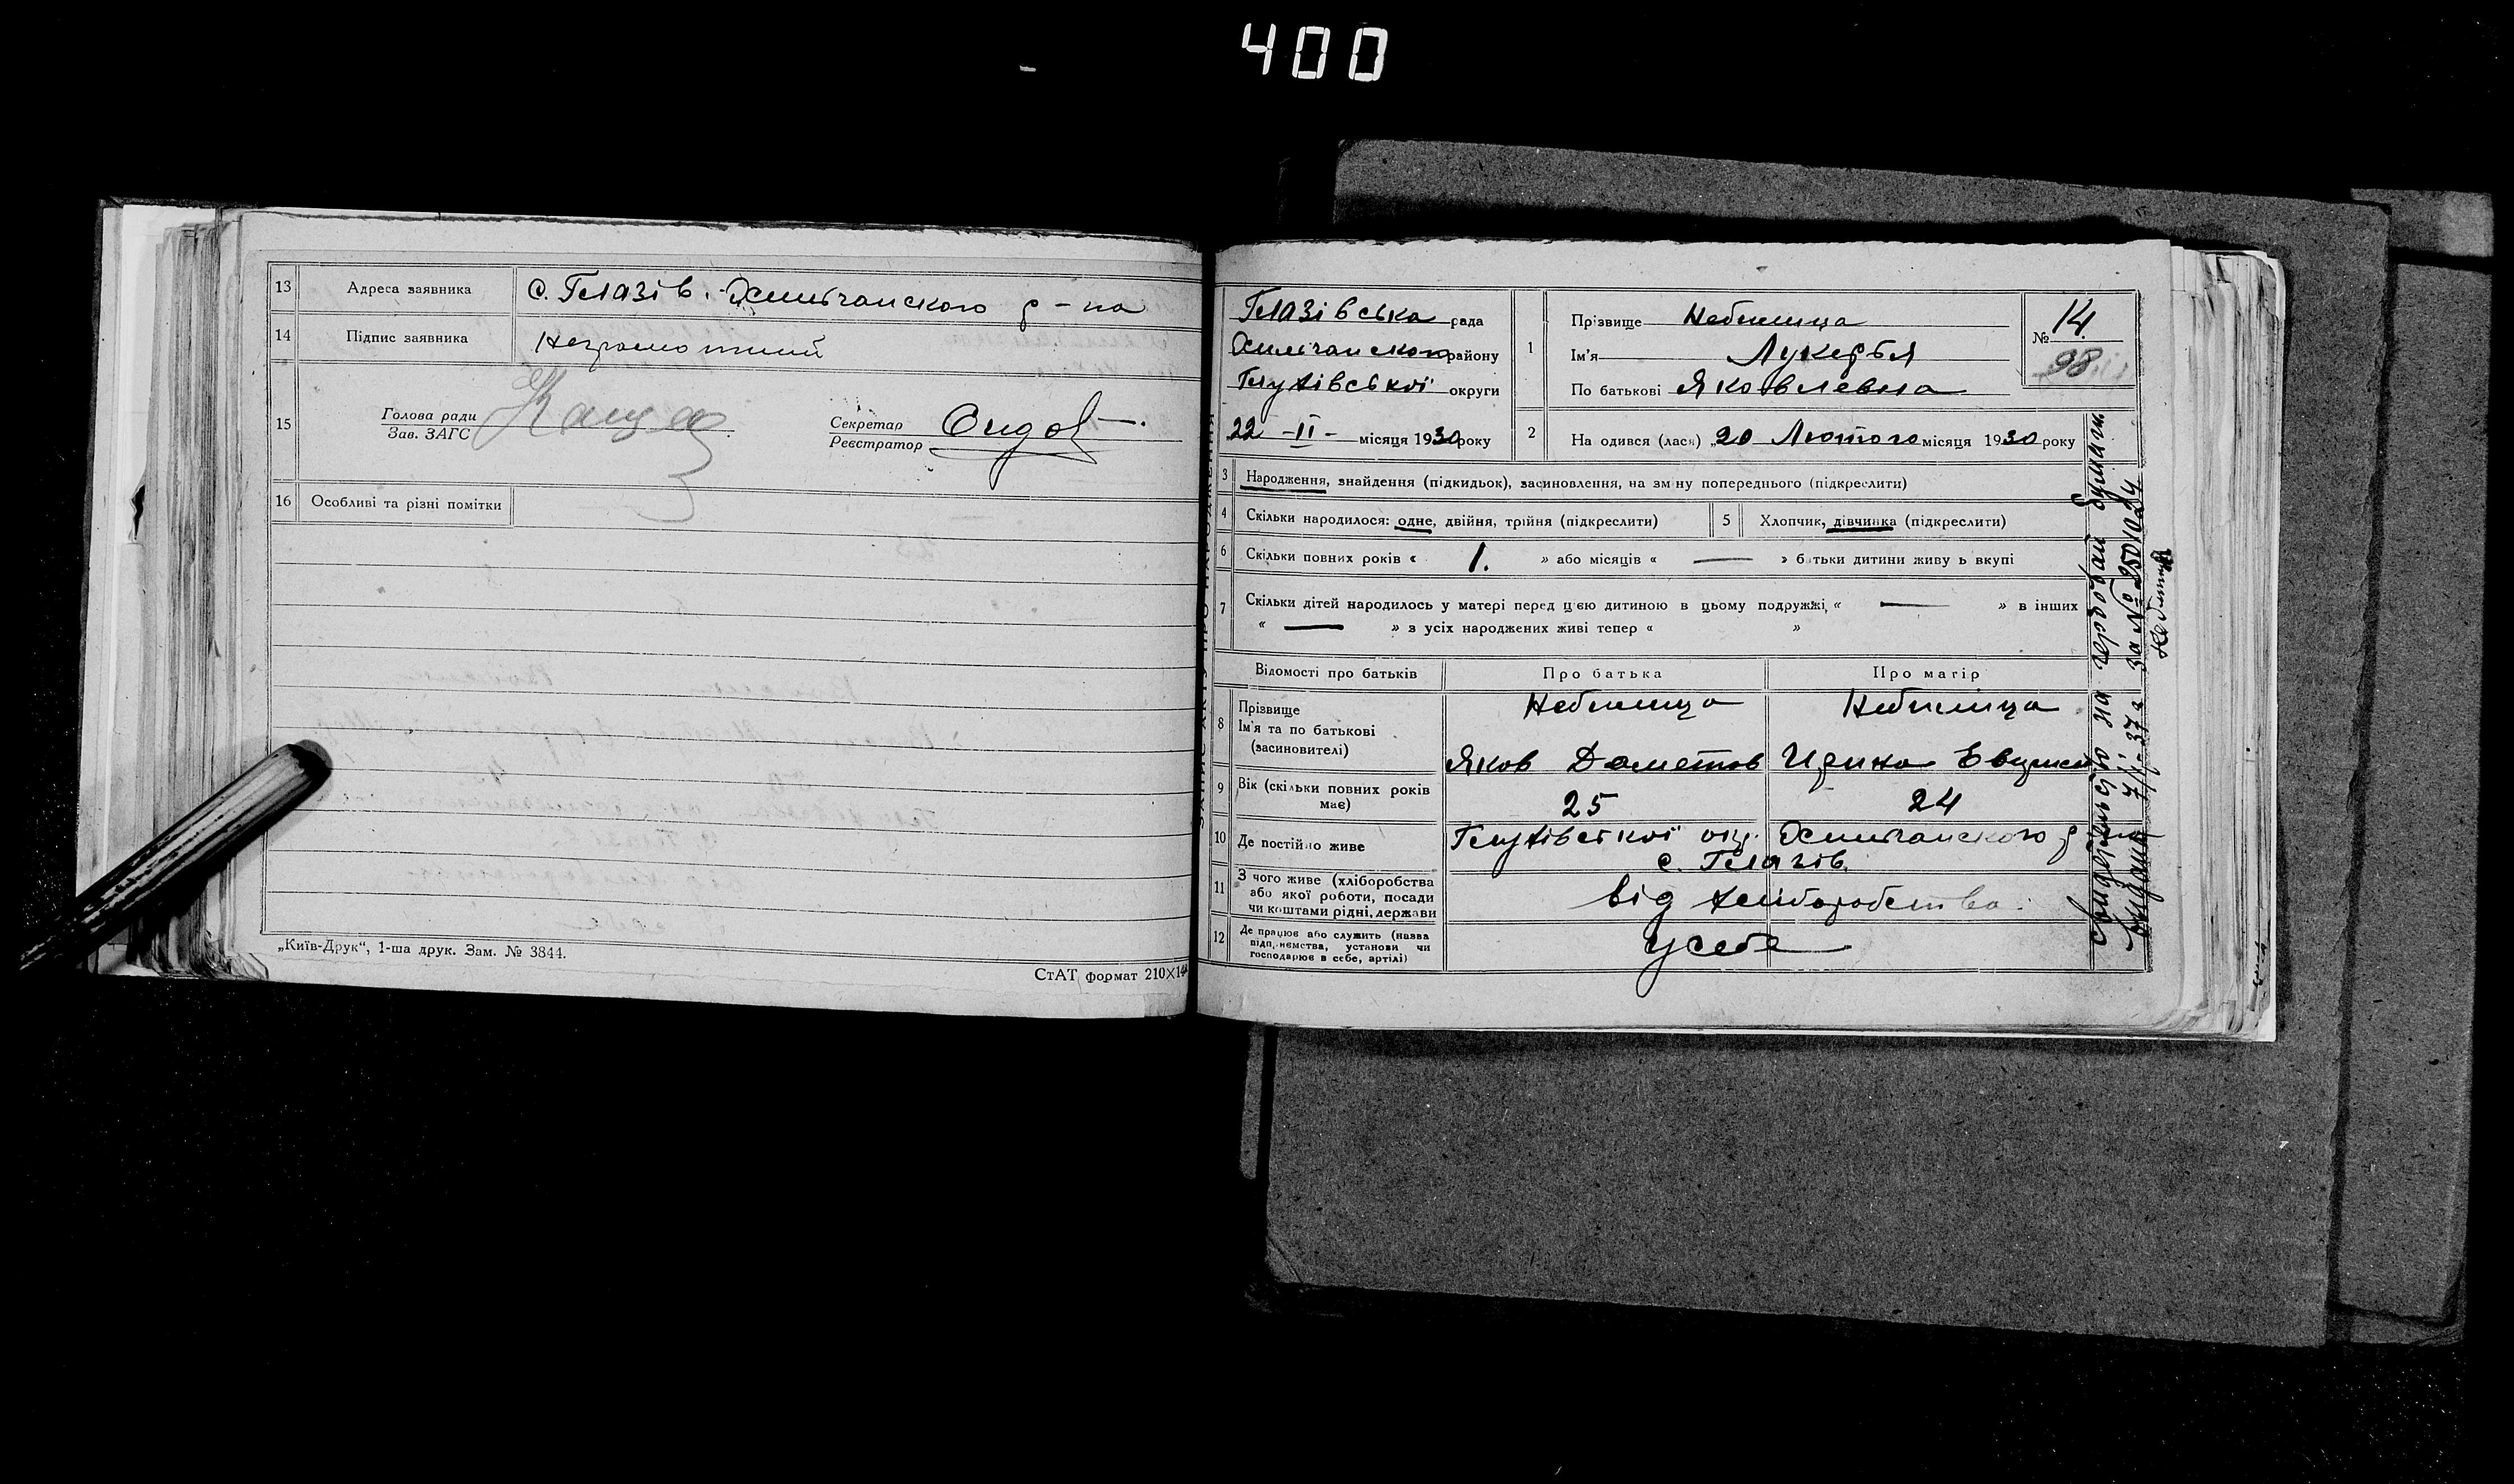 400
13 Адреса заявника с. Глазів. Осмічанского р-на
14 Підпис заявника Неграмотний
15 Голова ради
Зав. ЗАГС
Секретар
Реєстратор
16 Особливі та різні помітки
„Київ-Друк“, 1-ша друк. Зам. № 3844.
СтАТ формат 210×14
Глазівська рада
району
Глухівської округи
22 -II- місяця 1930 року
1 Прізвище Небилица
Ім'я Лукерья
По батькові Яковлевна
№ 14.
98
2 На одився (лася) „20 Лютого місяця 1930 року
3 Народження, знайдення (підкидьок), засиновлення, на зміну попереднього (підкреслити)
4 Скільки народилося: одне, двійня, трійня (підкреслити) 5 Хлопчик, дівчинка (підкреслити)
6 Скільки повних років « 1. » або місяців « — » батьки дитини живу ь вкупі
7 Скільки дітей народилось у матері перед цією дитиною в цьому подружжі, « — » в інших
« — » з усіх народжених живі тепер « »
Відомості про батьків Про батька Про матір
8 Прізвище Небилица Небилица
Ім'я та по батькові
(засиновителі) Яков Даметов
9 Вік (скільки повних років має) 25 24
10 Де постійно живе Глухівської окр. Осмічанского р
с. Глазів.
11 З чого живе (хліборобства
або якої роботи, посади
чи коштами рідні, держави від хліборобства.
12 Де працює або служить (назва
підприємства, установи чи
господарює в себе, артілі) у себе
ЗАПИС АКТУ ПРО НАРОДЖЕННЯ
на гербовай бумаги
7/I-37г за № 2501024